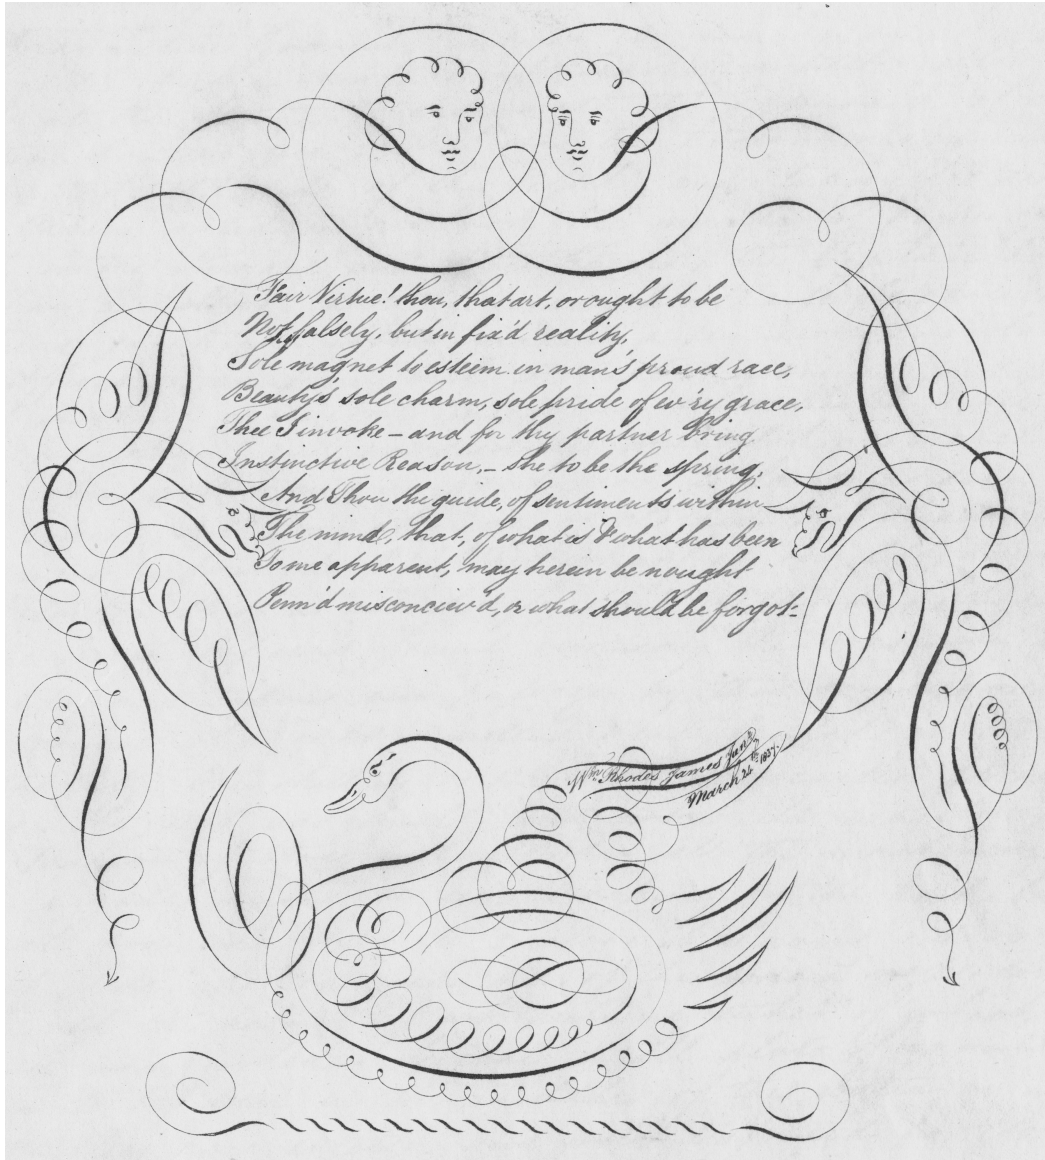 Fair Virtue! thou, that art, or ought to be
Not falsely, but in fix'd reality,
Sole magnet to esteem in man's proud race,
Beauty's sole charm, sole pride of ev'ry grace,
Thee I invoke – and for thy partner bring
Instinctive Reason, – she to be the spring,
And Thou the guide, of sentiments within
The mind, that, of what is & what has been
To me apparent, may herein be nought
Penn'd misconciev'd, or what should be forgot:
Wm. Rhodes James Junr.
March 24th 1837.